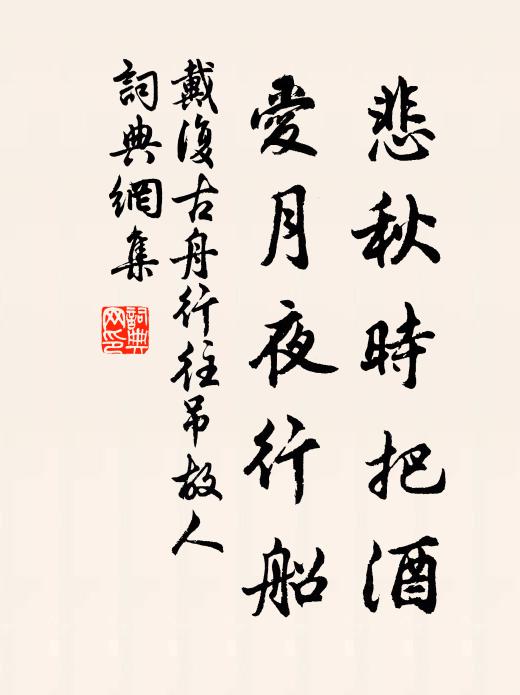 悲秋時把酒
愛月夜行船
戴復古舟行往吊故人
詞典網集
詞典网印